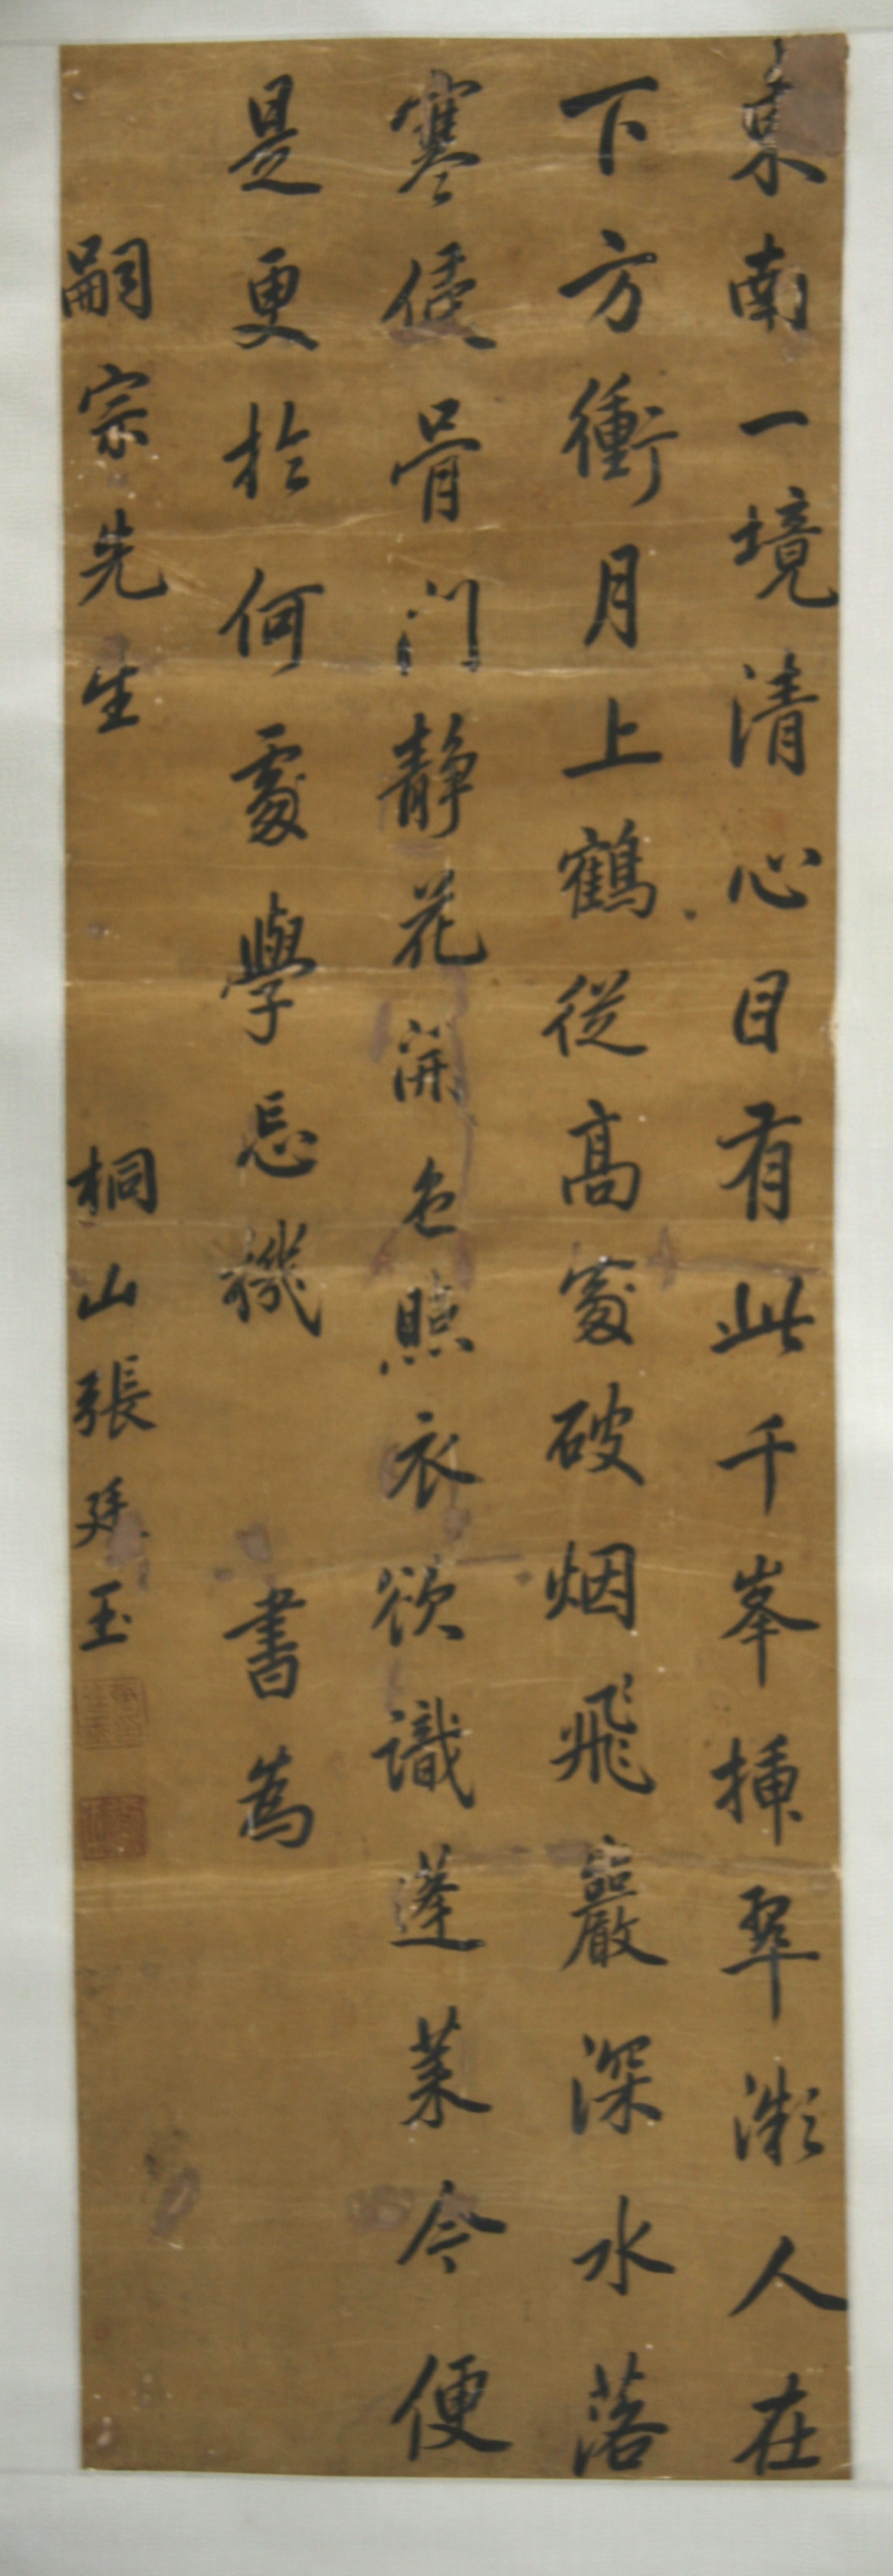 東南一境清心目有此千峯插翠微人在
下方衝月上鶴從高處破烟飛巖深水落
寒侵骨门静花開色照衣欲識蓬萊今便
是更於何處學忘機 書為
嗣宗先生 桐山張廷玉